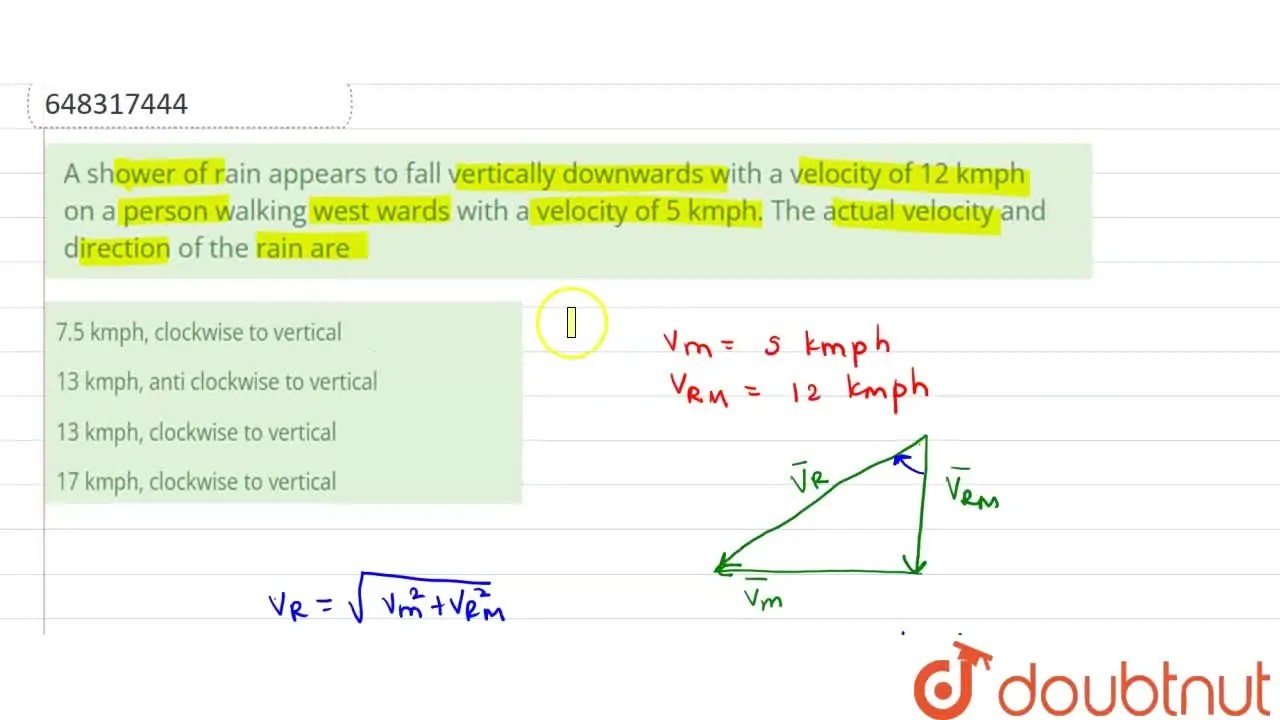 648317444
A shower of rain appears to fall vertically downwards with a velocity of 12 kmph
on a person walking west wards with a velocity of 5 kmph. The actual velocity and
direction of the rain are
7.5 kmph, clockwise to vertical
13 kmph, anti clockwise to vertical
13 kmph, clockwise to vertical
17 kmph, clockwise to vertical
Vm = 5 kmph
VRM = 12 kmph
V̅R
V̅RM
V̅m
VR = √Vm² + VRM²
doubtnut